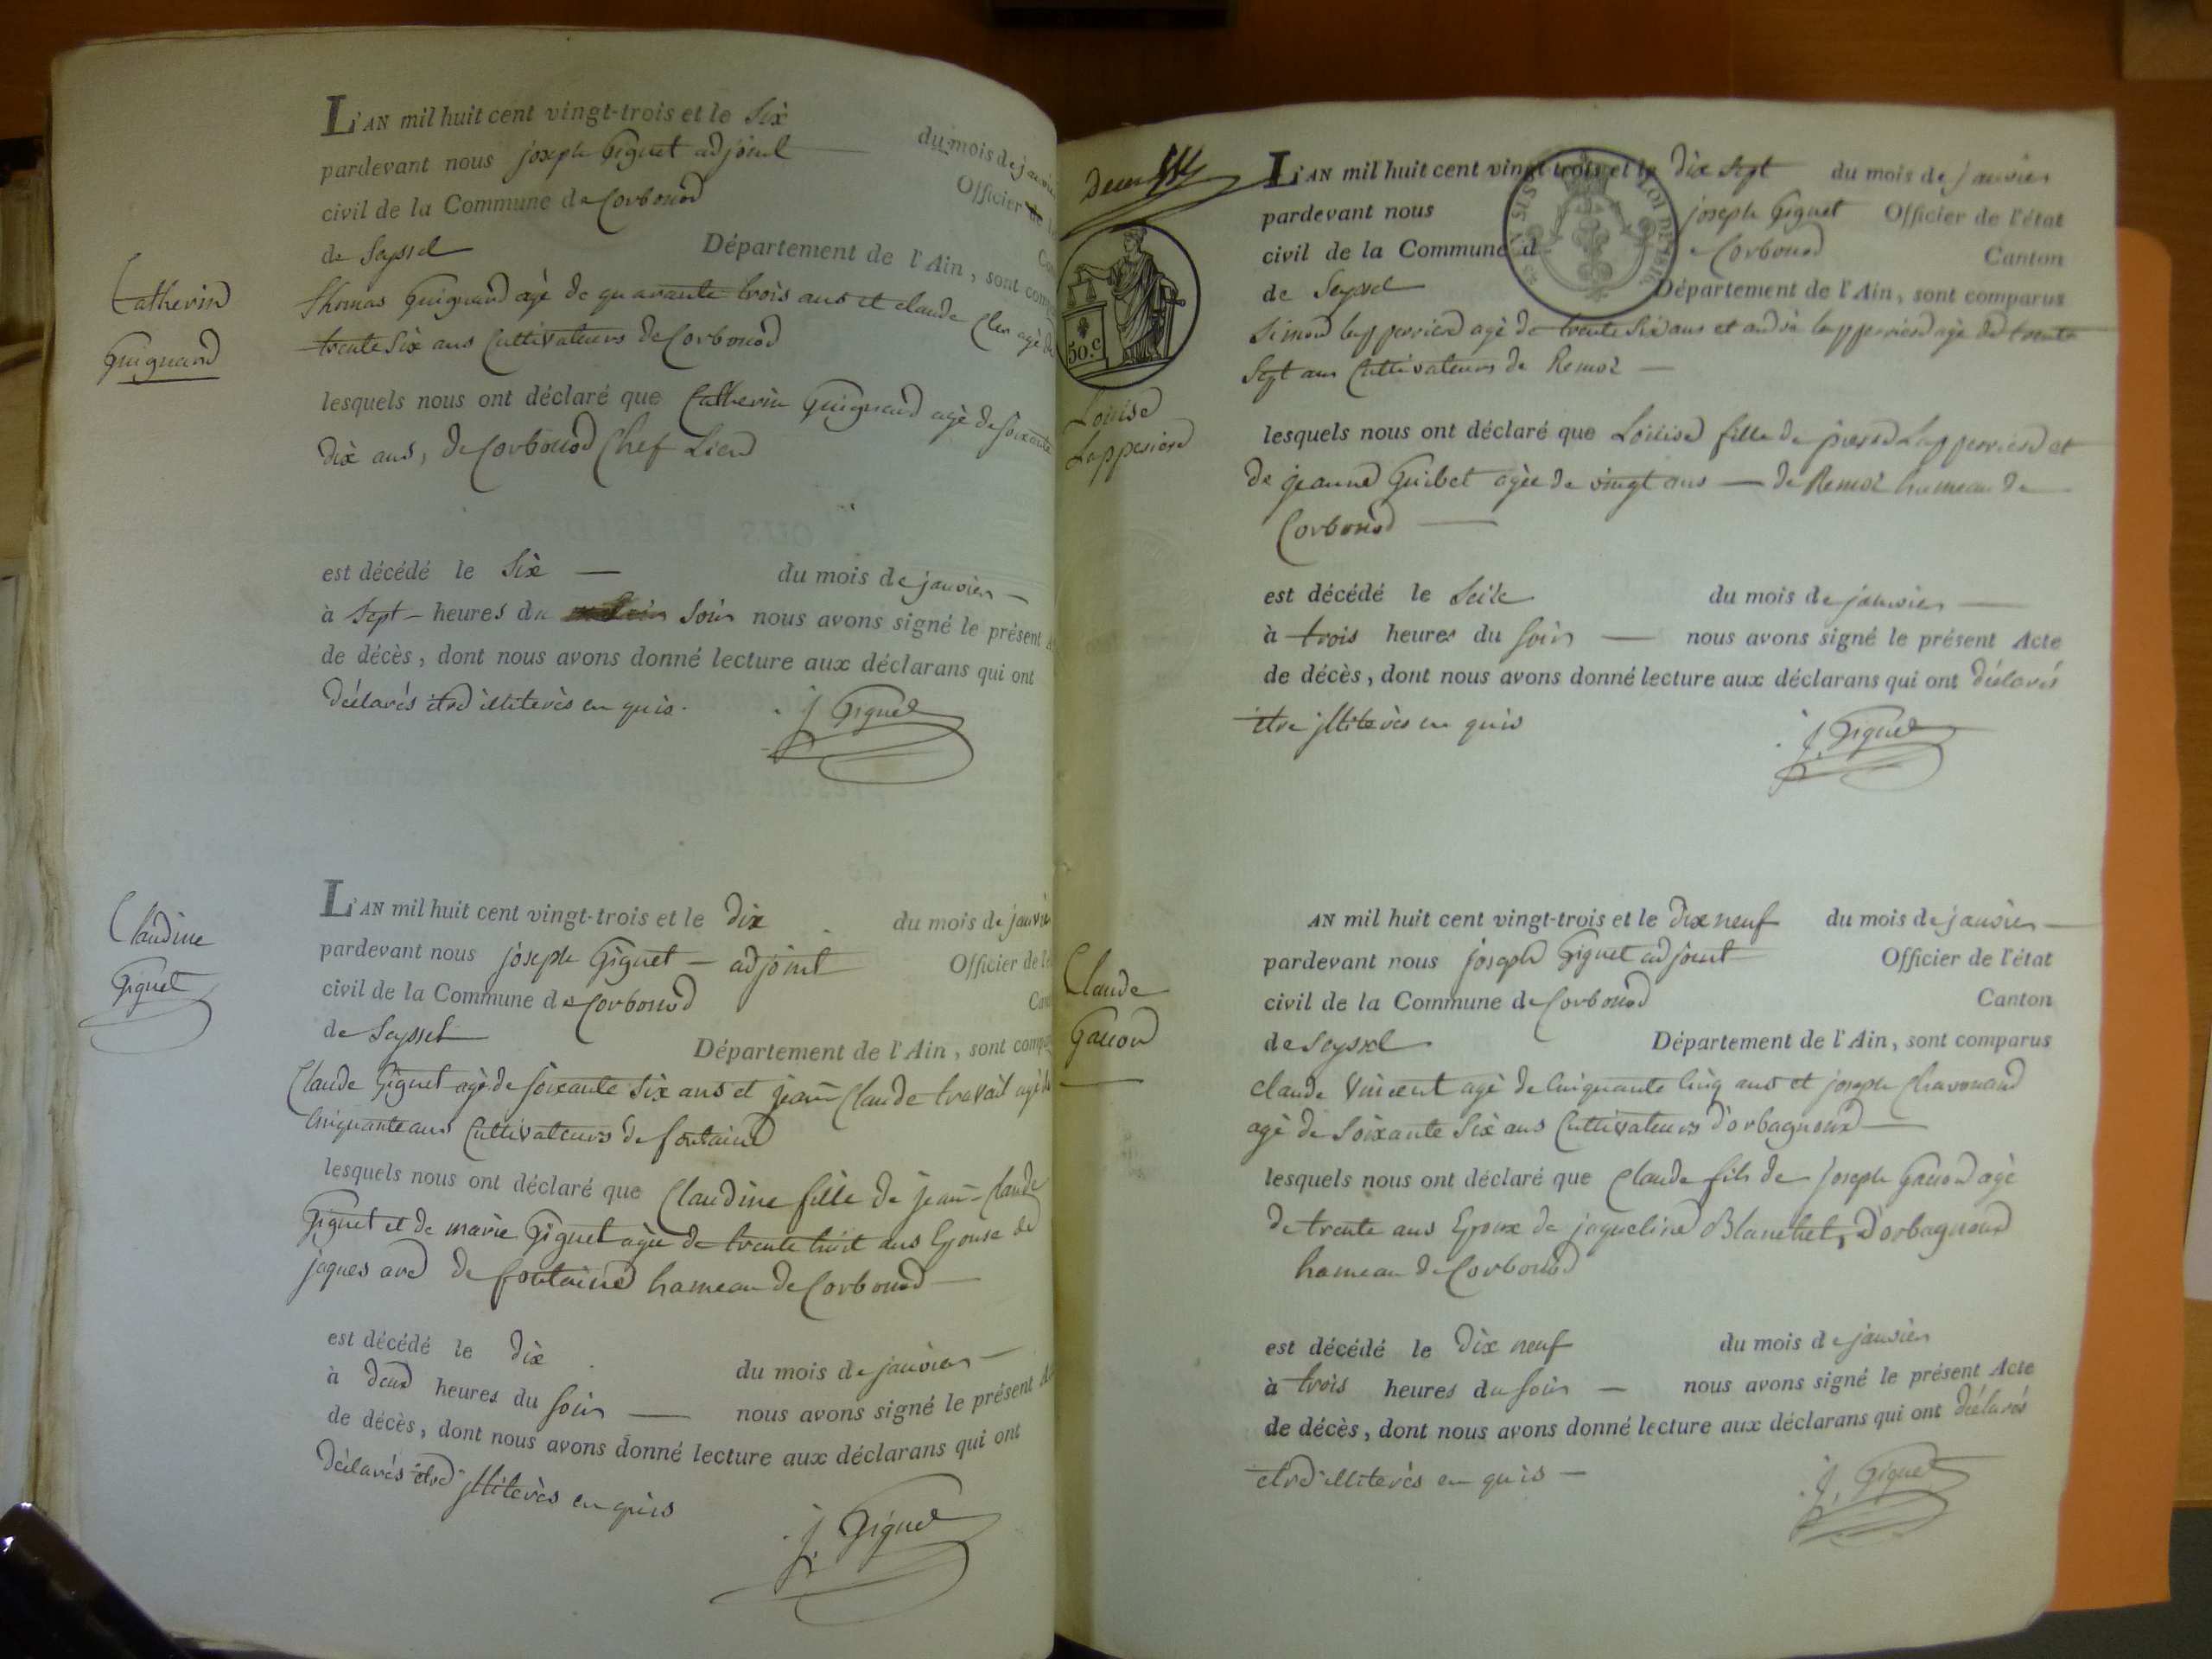 L'AN mil huit cent vingt-trois et le Six du mois de janvier
pardevant nous joseph Giguet adjoint Officier de
civil de la Commune de Corbonod
de Seyssel Département de l'Ain, sont
Thomas Guignard agé de quarante trois ans et claude Cler agé de
trente Six ans Cultivateurs de Corbonod
Catherin
Guignard
lesquels nous ont déclaré que Catherin Guignard agé de Soixante
Dix ans, de Corbonod Chef Lieu
est décédé le Six — du mois de janvier —
à Sept — heures du Soir nous avons signé le présent
de décès, dont nous avons donné lecture aux déclarans qui ont
déclarés être illiterés en quis.
J Giguet
L'AN mil huit cent vingt-trois et le Dix du mois de janvier
pardevant nous joseph Giguet — adjoint Officier de
civil de la Commune de Corbonod
de Seyssel Département de l'Ain, sont
Claudine
Giguet
Claude Giguet agé de soixante Six ans et jean Claude travait agé de
Cinquante ans Cultivateurs de fontaine
lesquels nous ont déclaré que Claudine fille de jean-Claude
Giguet et de marie Giguet agée de trente huit ans Epouse de
jaques de fontaine hameau de Corbonod —
est décédé le Dix du mois de janvier —
à Deux heures du Soir — nous avons signé le présent
de décès, dont nous avons donné lecture aux déclarans qui ont
déclarés être illiterés en quis
J, Giguet
Deux
L'AN mil huit cent vingt-trois et le Dix Sept du mois de janvier
pardevant nous joseph Giguet Officier de l'état
civil de la Commune de Corbonod Canton
de Seyssel Département de l'Ain, sont comparus
LOI DE 1816
50.c
Simond lapperriere agé de trente Six ans et andré lapperriere agé de trente
Sept ans Cultivateurs de Remoz —
Louise
Lapperiere
lesquels nous ont déclaré que Louise fille de pierre Lapperriere et
de jeanne Guibet agée de vingt ans — de Remoz hameau de
Corbonod —
est décédé le Seize du mois de janvier —
à trois heures du Soir — nous avons signé le présent Acte
de décès, dont nous avons donné lecture aux déclarans qui ont déclarés
être illiterés en quis
J, Giguet
AN mil huit cent vingt-trois et le Dix neuf du mois de janvier —
pardevant nous joseph Giguet adjoint Officier de l'état
civil de la Commune de Corbonod Canton
de Seyssel Département de l'Ain, sont comparus
Claude
Gauon
claude Vincent agé de Cinquante Cinq ans et joseph Chavonand
agé de Soixante Six ans Cultivateurs d'orbagnoux —
lesquels nous ont déclaré que Claude fils de joseph Gauon agé
de trente ans Epoux de jaqueline Blanchet, d'orbagnoux
hameau de Corbonod
est décédé le Dix neuf du mois de janvier
à trois heures du Soir — nous avons signé le présent Acte
de décès, dont nous avons donné lecture aux déclarans qui ont déclarés
être illiterés en quis —
J, Giguet